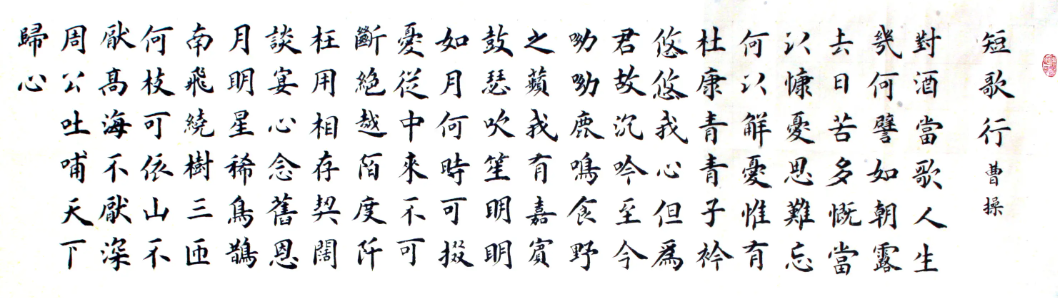 短歌行 曹操
對酒當歌人生
幾何譬如朝露
去日苦多慨當
以慷憂思難忘
何以解憂惟有
杜康青青子衿
悠悠我心但爲
君故沉吟至今
呦呦鹿鳴食野
之蘋我有嘉賓
鼓瑟吹笙明明
如月何時可掇
憂從中來不可
斷絕越陌度阡
枉用相存契闊
談宴心念舊恩
月明星稀烏鵲
南飛繞樹三匝
何枝可依山不
厭高海不厭深
周公吐哺天下
歸心